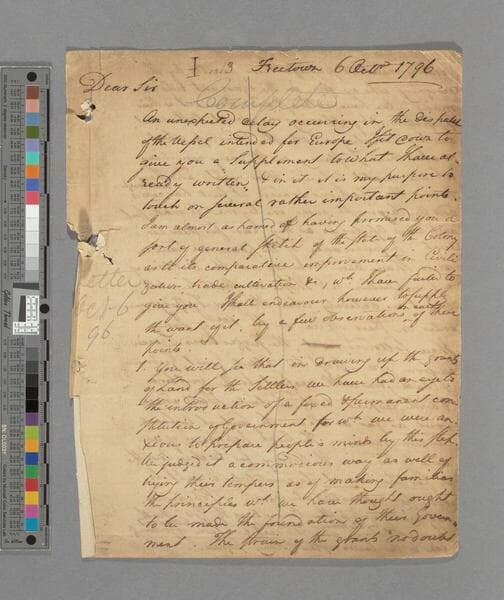 I no 3 Freetown 6 Octr 1796
Dear Sir
Complete
An unexpected delay occurring in the despatch
of the Vessel intended for Europe I sit down to
give you a Supplement to what I have al-
ready written, & in it it is my purpose to
touch on several rather important points.
I am almost ashamed of having promised you a
sort of general sketch of the State of the Colony
as to its comparative improvement in Civili-
zation trade cultivation &c, wh I have failed to
give you I shall endeavour however to supply
the want of it by a few observations on each of these
points
1 You will see that in drawing up the grants
of Land for the Settlers we have had an eye to
the introduction of a fixed & permanent con-
stitution of Government for wh we were an-
xious to prepare people's minds by this step
We judged it a commodious way as well of
trying their tempers as of making familiar
the principles wh we have thought ought
to be made the foundation of their govern-
ment. The strain of the grants no doubt
Letter
Oct 6
96